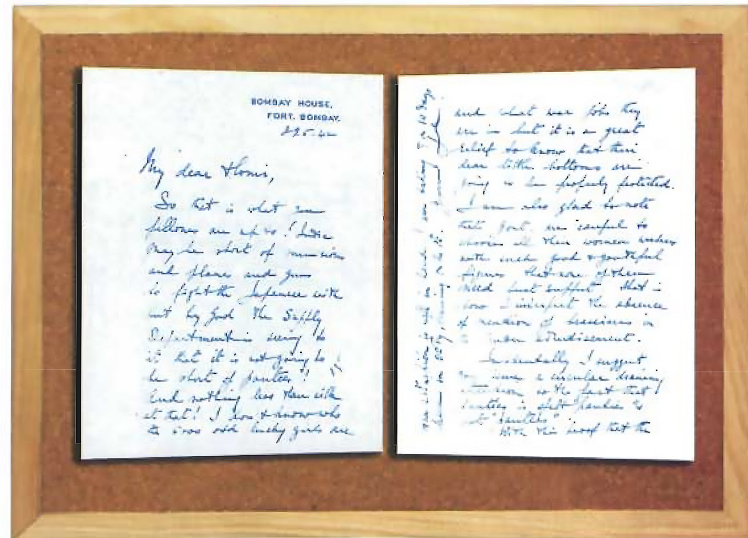 BOMBAY HOUSE,
FORT, BOMBAY.
29.5.42
My dear Homi,
So that is what you
fellows are up to! India
may be short of munitions
and planes and guns
to fight the Japanese with
but by God the Supply
Department is seeing to
it that it is not going to
be short of "panties"!
And nothing less than silk
at that! I don't know who
the odd lucky girls are
and what war jobs they
are in but it is a great
relief to know that their
dear little bottoms are
going to be properly protected.
I am also glad to note
that Govt. are careful to
choose all their women workers
with such good & youthful
figures that none of them
need bust support. That is
how I interpret the absence
of mention of brassieres in
advertisement.
Incidentally I suggest
you issue a circular drawing
attention to the fact that
panties is spelt "panties" &
not "pantees"
With this proof that the